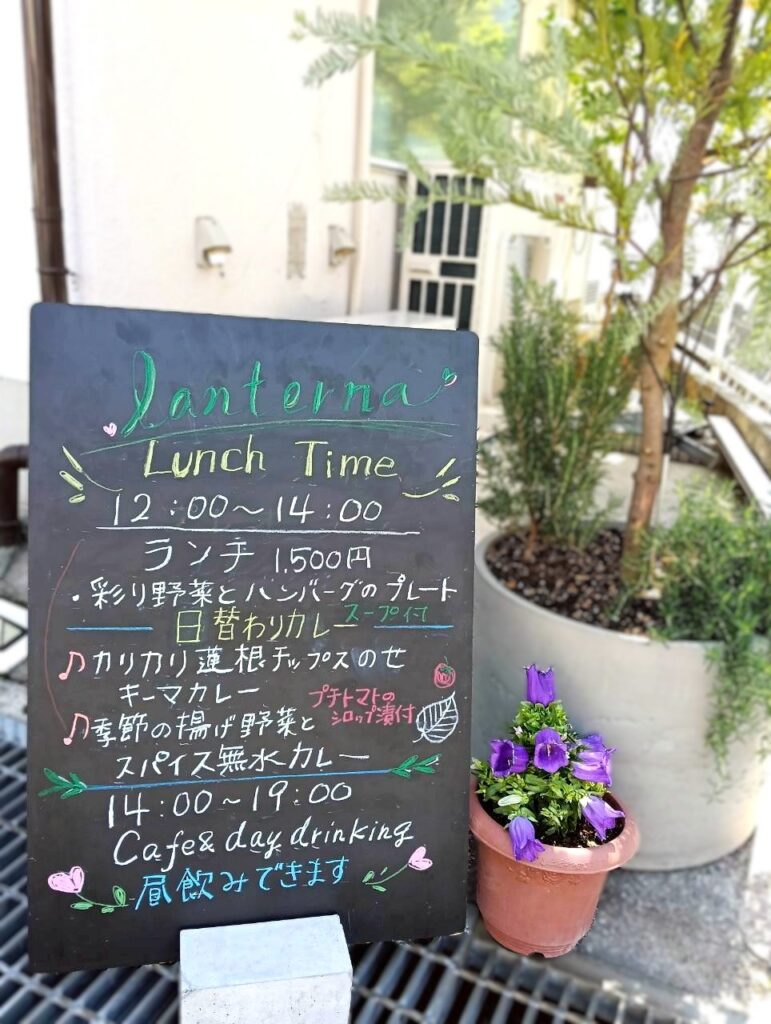 lanterna
Lunch Time
12:00～14:00
ランチ 1,500円
・彩り野菜とハンバーグのプレート
スープ付
日替わりカレー
♪カリカリ蓮根チップスのせ
キーマカレー
♪季節の揚げ野菜と
スパイス無水カレー
プチトマトの
シロップ漬付
14:00～19:00
Cafe& day drinking
昼飲みできます